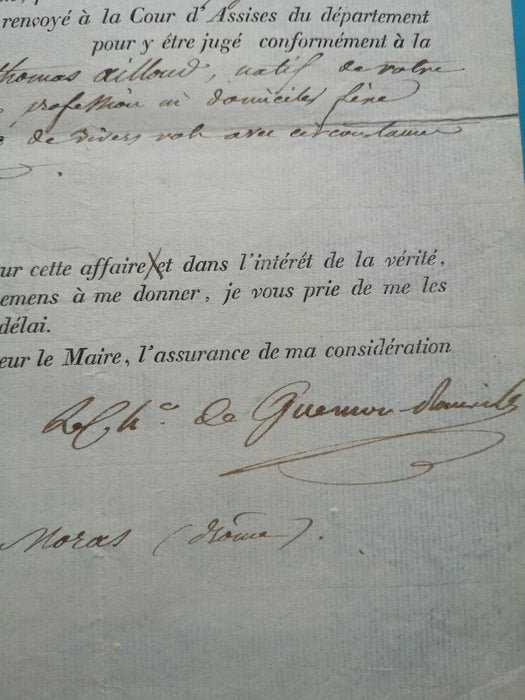 renvoyé à la Cour d'Assises du département
pour y être jugé conformément à la
thomas ailloud, natif de votre
profession ni domiciles fixe
de divers vols avec circonstances
ur cette affaire et dans l'intérêt de la vérité,
emens à me donner, je vous prie de me les
délai.
eur le Maire, l'assurance de ma considération
Le Ch.er de Guernon
Moras (Drôme).